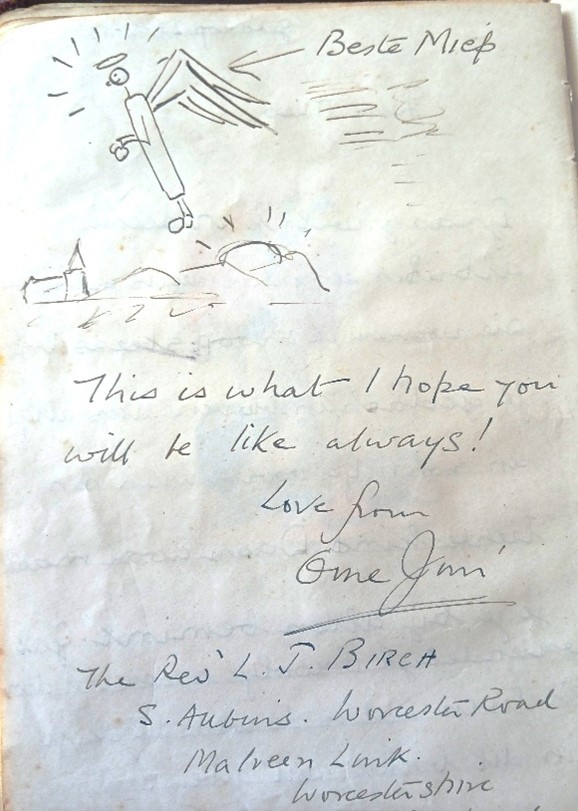 Beste Miep
This is what I hope you
will be like always!
Love from
Ome Jim
The Rev L. J. BIRCH
S. Aubins. Worcester Road
Malvern Link.
Worcestershire